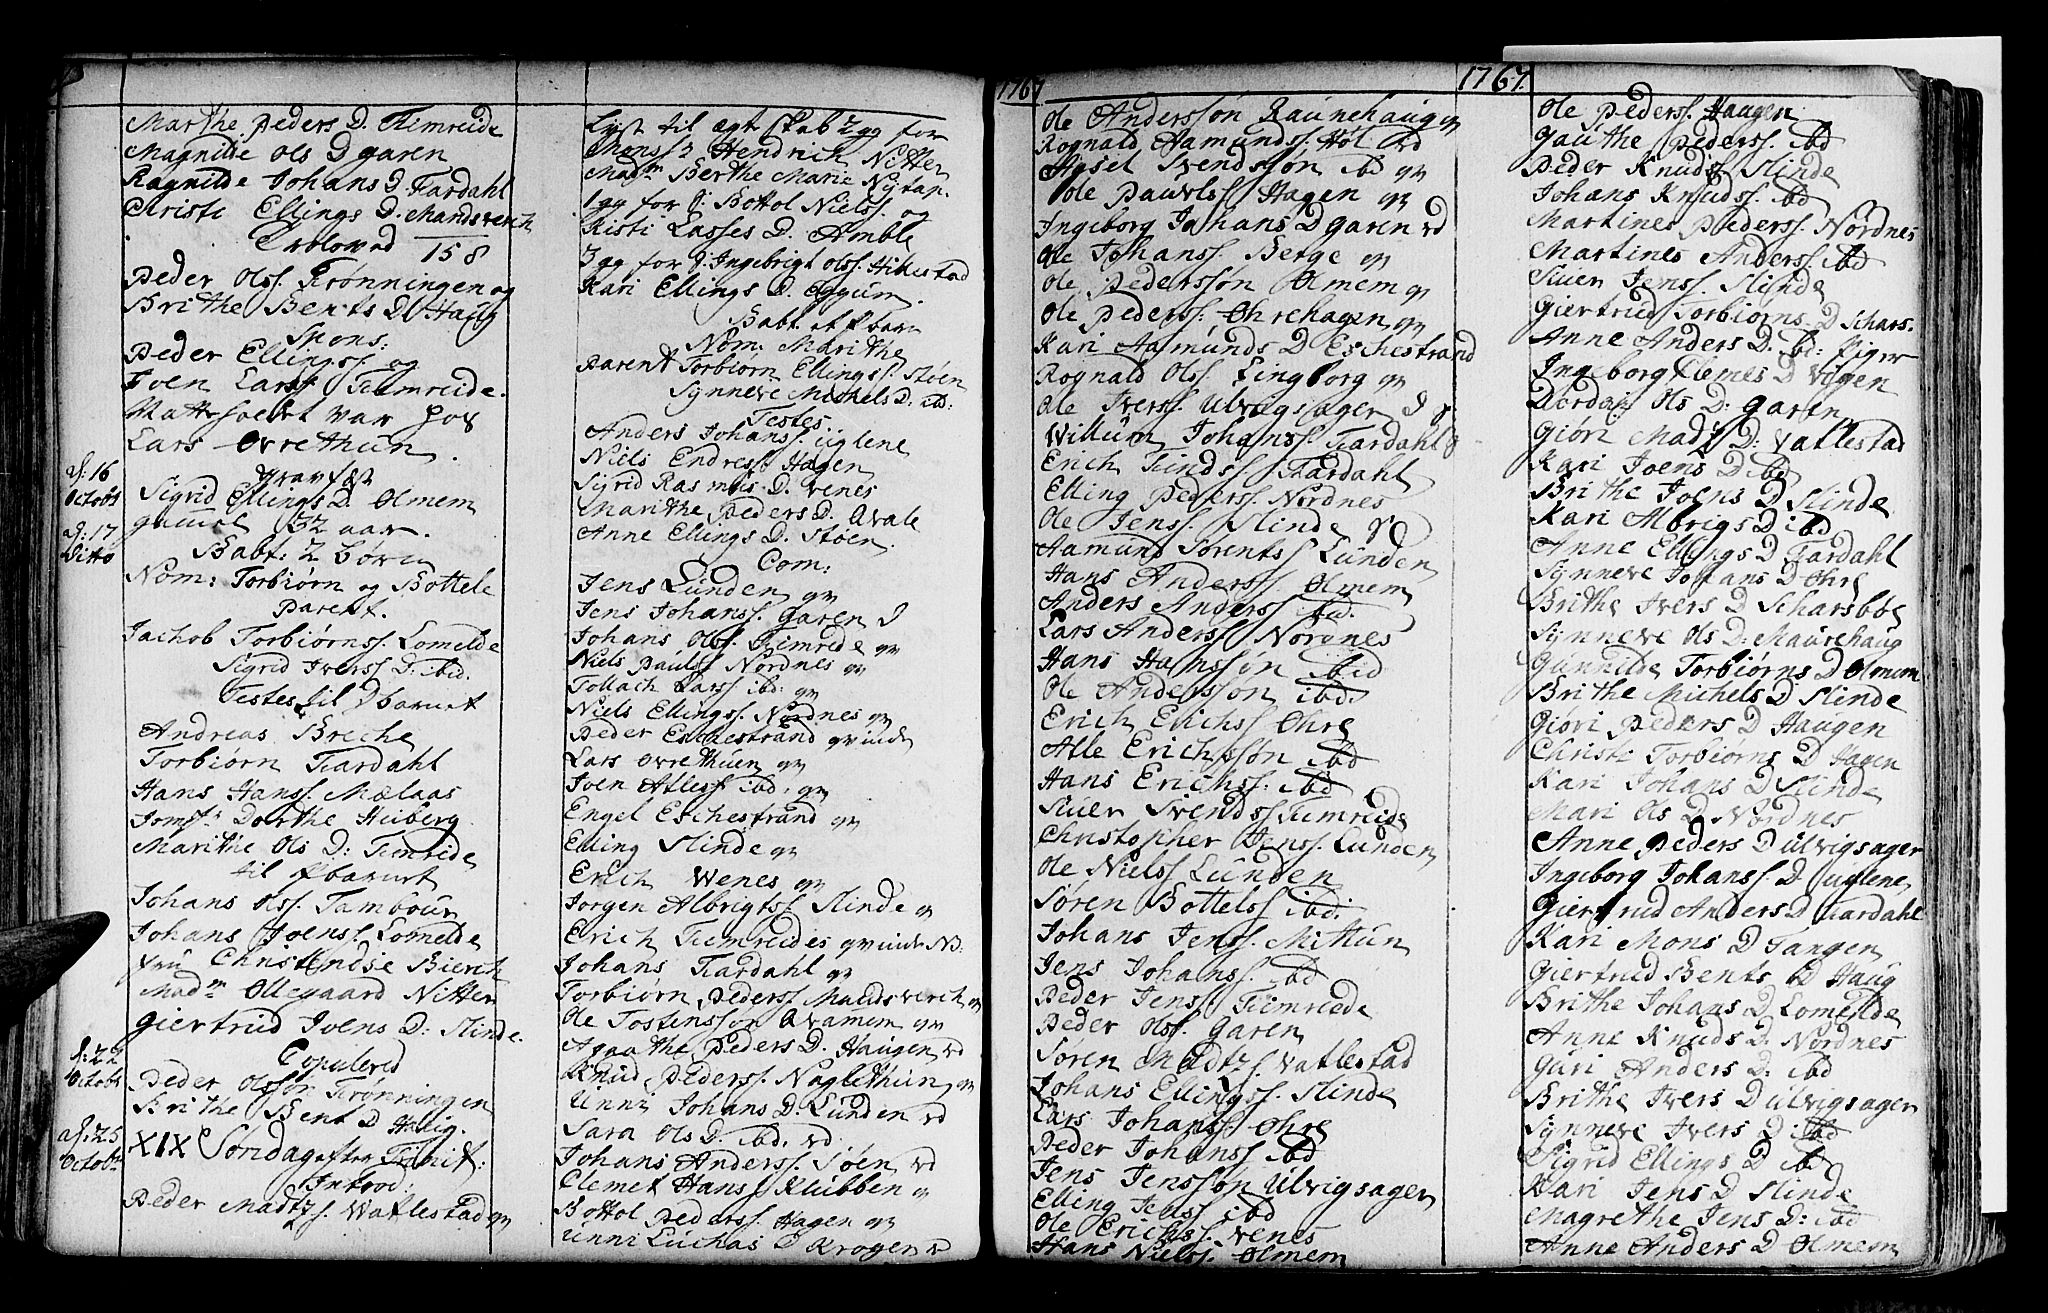 Marthe Peders D. Timreide
Magnilde Ols D garen
Ragnilde Johans D. Fardahl
Christi Ellings D. Mandsverch
Troloved 158
Peder Olss. Trønningen og
Brithe Bents D. Haug
Spons:
Peder Ellingss og
Joen Larss Timreide.
var hos
Lars Ovrethun.
Gravfæst
af: 16
Octobr
Sigrid Ellings D. Olmem
gamel 32 aar.
af: 17
Ditto
Babt: 2 børn
Nom: Torbiørn og Bottele
Parent.
Jachob Torbiørnss. Lomelde
Sigrid Iverss D: ibid.
Testes til D barnet
Andreas Breche
Torbiørn Fardahl
Hans Hanss. Mælaas
Jomf: Dorthe Huiberg
Marithe Ols D: Timreide
til P barnet
Johans Olss. Tambour
Johans Joenss. Lomelde
fru Christense Bierch
Madm Ollegaard Nitter
Giertrud Joens D: Slinde.
Copulered
d: 22
Octobr
Peder Olssøn Trønningen
Brithe Bent D Haug.
af: 25
Octobr
XIX Søndag efter Trinit:
Introd:
Peder Madtz s. Vatlestad qv
Lyst til egteskab 2 gg for
Monsr Hendrich Nitter
Madm Berthe Marie Nytap.
1 gg for S. Bottol Nielss. og
Kisti Lasses D. Amble
3 gg for S. Ingebrigt Olss. Hikestad
Kari Ellings D. Eggum.
Babt. et P barn
Nom: Marithe
Parent Torbiørn Ellingss. Støen
Synneve Michels D. ib:
Testes.
Anders Johanss. Uglene
Niels Endress Hagen
Sigrid Rasmus D. Venes
Marithe Peders D. Qvale
Anne Ellings D. Støen.
Com:
Jens Lunden qv
Jens Johanss. Garen
Johans Olss. Timreide qv
Niels Paulss Nordnes qv
Tollach Larss. ibd: qv
Niels Ellingss. Nordnes qv
Peder Eschestrand qvinde
Lars Ovrethuen qv
Joen Atless ibd. qv
Engel Eschestrand qv
Elling Slinde qv
Erich Wenes qv
Jørgen Albrigtss. Slinde qv
Erich Timreides qvinde NB:
Johans Fardahl qv
Torbiørn Pederss Mandsverch qv
Ole Tostenssøn Qvamem qv
Agaathe Peders D. Haugen vd
Knud Pederss. Naglethun qv
Unni Johans D. Lunden vd
Sara Ols D. ibd. vd.
Johans Anderss. Søen vd
Clemet Hanss Klubben qv
Bottol Pederss. Hagen qv
Unni Luchas D Krogen vd
1767
Ole Anderssøn Raunehaug qv
Rognald Aamundss. Høl vd
Axsel Svendssøn ibd qv
Ole Pauvlss Hagen qv
Ingeborg Johans D garen vd
Ole Johanss. Berge qv
Ole Pederssøn Olmem qv
Ole Pederss. Ohrehagen qv
Kari Aamunds D Eschestrand
Rognald Olss. Lingborg qv
Ole Iverss. Ulvigsager
Willum Johanss Fardahl
Erich Findss Fardahl
Elling Pederss. Nordnes
Ole Jenss. Slinde
Aamund Sørentss Lunden
Hans Anderss Olmem
Anders Anderss ibd.
Lars Anderss Nordnes
Hans Hanssøn ibid
Ole Anderssøn ibd.
Erich Erichss Ohre
Alle Erichssøn ibd
Hans Erichss. ibd
Siuer Svendss Timreide
Christopher Jenss. Lunden
Ole Nielss Lunden
Søren Bottelss ibd:
Johans Jenss. Mithun
Jens Johanss. ibd
Peder Jenss Timreide
Peder Olss. Garen
Søren Madtz s. Vatlestad
Johans Ellingss. Slinde
Lars Johanss Ohre
Peder Johanss ibd
Jens Jenssøn Ulvigsager
Elling Jenss ibd
Ole Erichss. Venes
Hans Nielss. Olmem
1767.
Ole Pederss. Haugen
Gauthe Pederss. ibd
Peder Knudss Slinde
Johans Knudss. ibd
Martines Pederss. Nordnes
Martines Anderss. ibd
Siuer Jenss. Slinde
Giertrud Torbiørns D Schars.
Anne Anders D. ib: Piger
Ingeborg Clemes D Vigen
Dordai Ols D: garen
Giøri Madtz D: Vatlestad
Kari Joens D ibd
Brithe Joens D Slinde
Kari Albrigs D ibd
Anne Ellings D Fardahl
Synneve Johans D Ohre
Brithe Ivers D Scharsboe
Synneve Ols D: Maurehaug
Gunnilde Torbiørns D Olmem
Brithe Michels D Slinde
Giøri Peders D Haugen
Christi Torbiørns D Hagen
Kari Johans D Slinde
Mari Ols D Nordnes
Anne Peders D Ulvigsager
Ingeborg Johanss. D Uglene
Giertrud Anders D Fardahl
Kari Mons D Tangen
Giertrud Bents D Haug
Brithe Johans D Lomelde
Anne Knuds D. Nordnes
Guri Anders D: ibd
Brithe Ivers D Ulvigsager
Synneve Ivers D: ibd
Sigrid Ellings D ibd
Kari Jens D Slinde
Magrethe Jens D: ibd
Anne Anders D Olmem